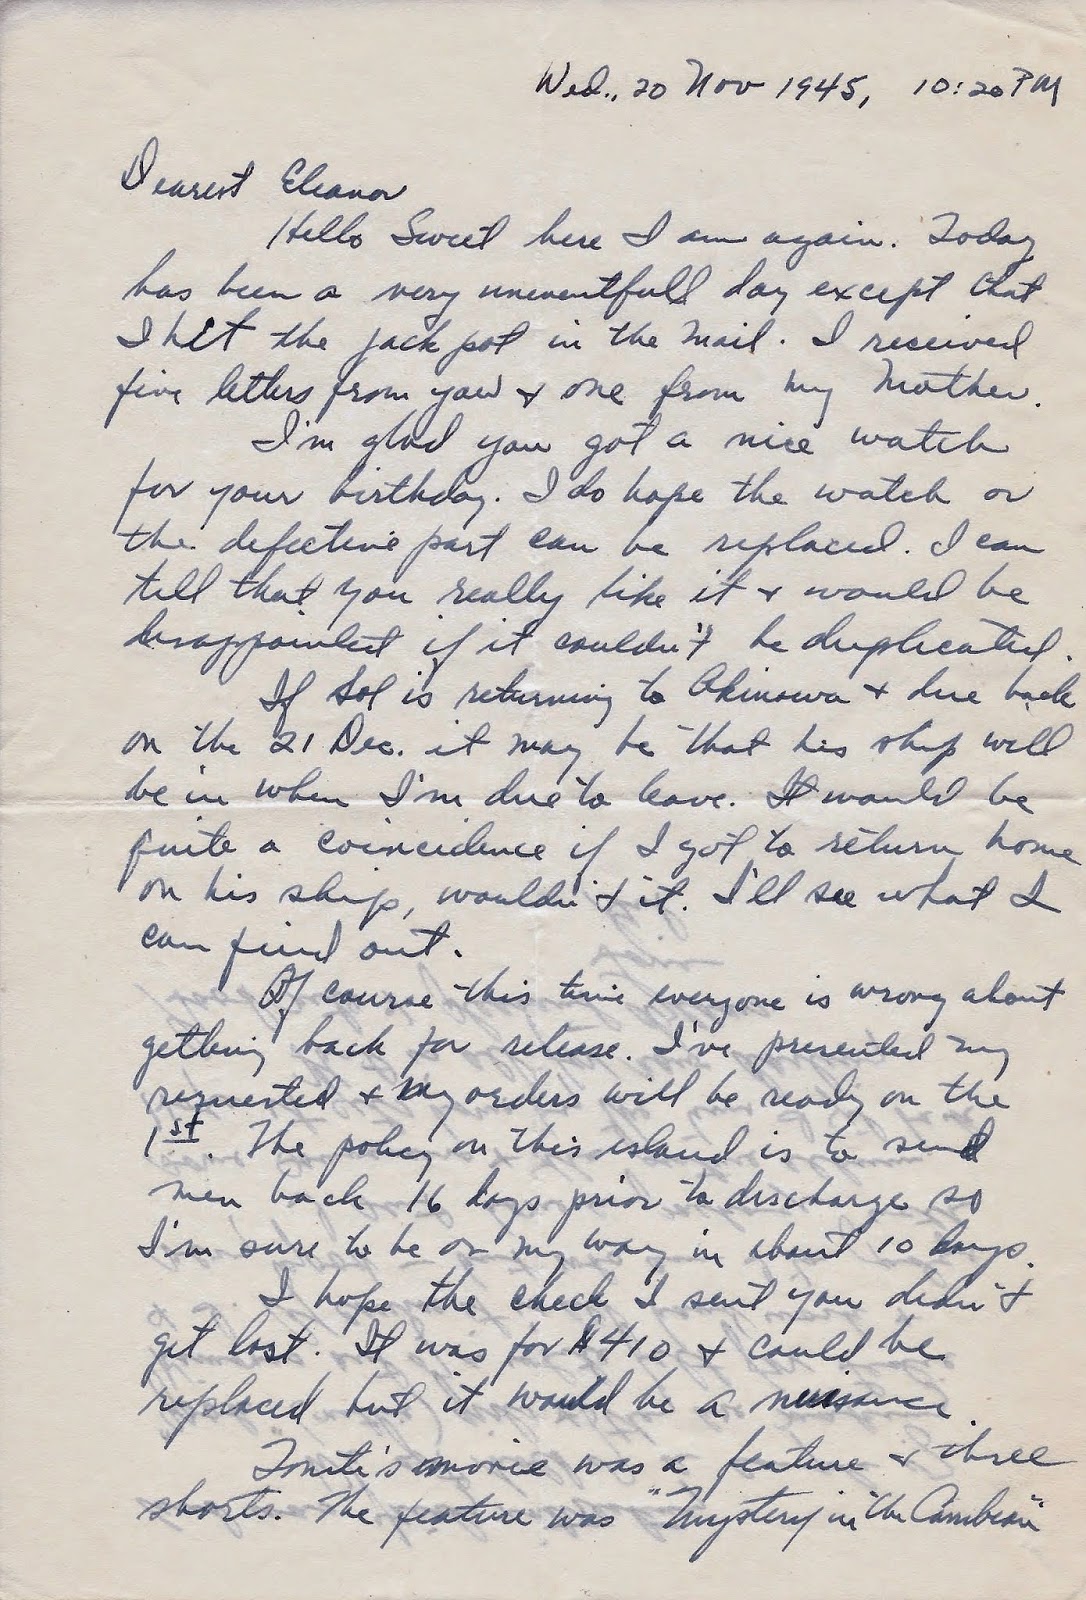 Wed., 20 Nov 1945, 10:20 PM
Dearest Eleanor
Hello Sweet here I am again. Today
has been a very uneventfull day except that
I hit the jack pot in the mail. I received
five letters from you & one from my Mother.
I'm glad you got a nice watch
for your birthday. I do hope the watch or
the defective part can be replaced. I can
tell that you really like it & would be
disappointed if it couldn't be duplicated.
If Sol is returning to Okinawa & due back
on the 21 Dec. it may be that his ship will
be in when I'm due to leave. It would be
quite a coincidence if I got to return home
on his ship, wouldn't it. I'll see what I
can find out.
Of course this time everyone is wrong about
getting back for release. I've presented my
requested & my orders will be ready on the
1st. The policy on this island is to send
men back 16 days prior to discharge so
I'm sure to be on my way in about 10 days.
I hope the check I sent you didn't
get lost. It was for $410 & could be
replaced but it would be a nuisance.
Tonite's movie was a feature & three
shorts. The feature was "Mystery in the Carribean"